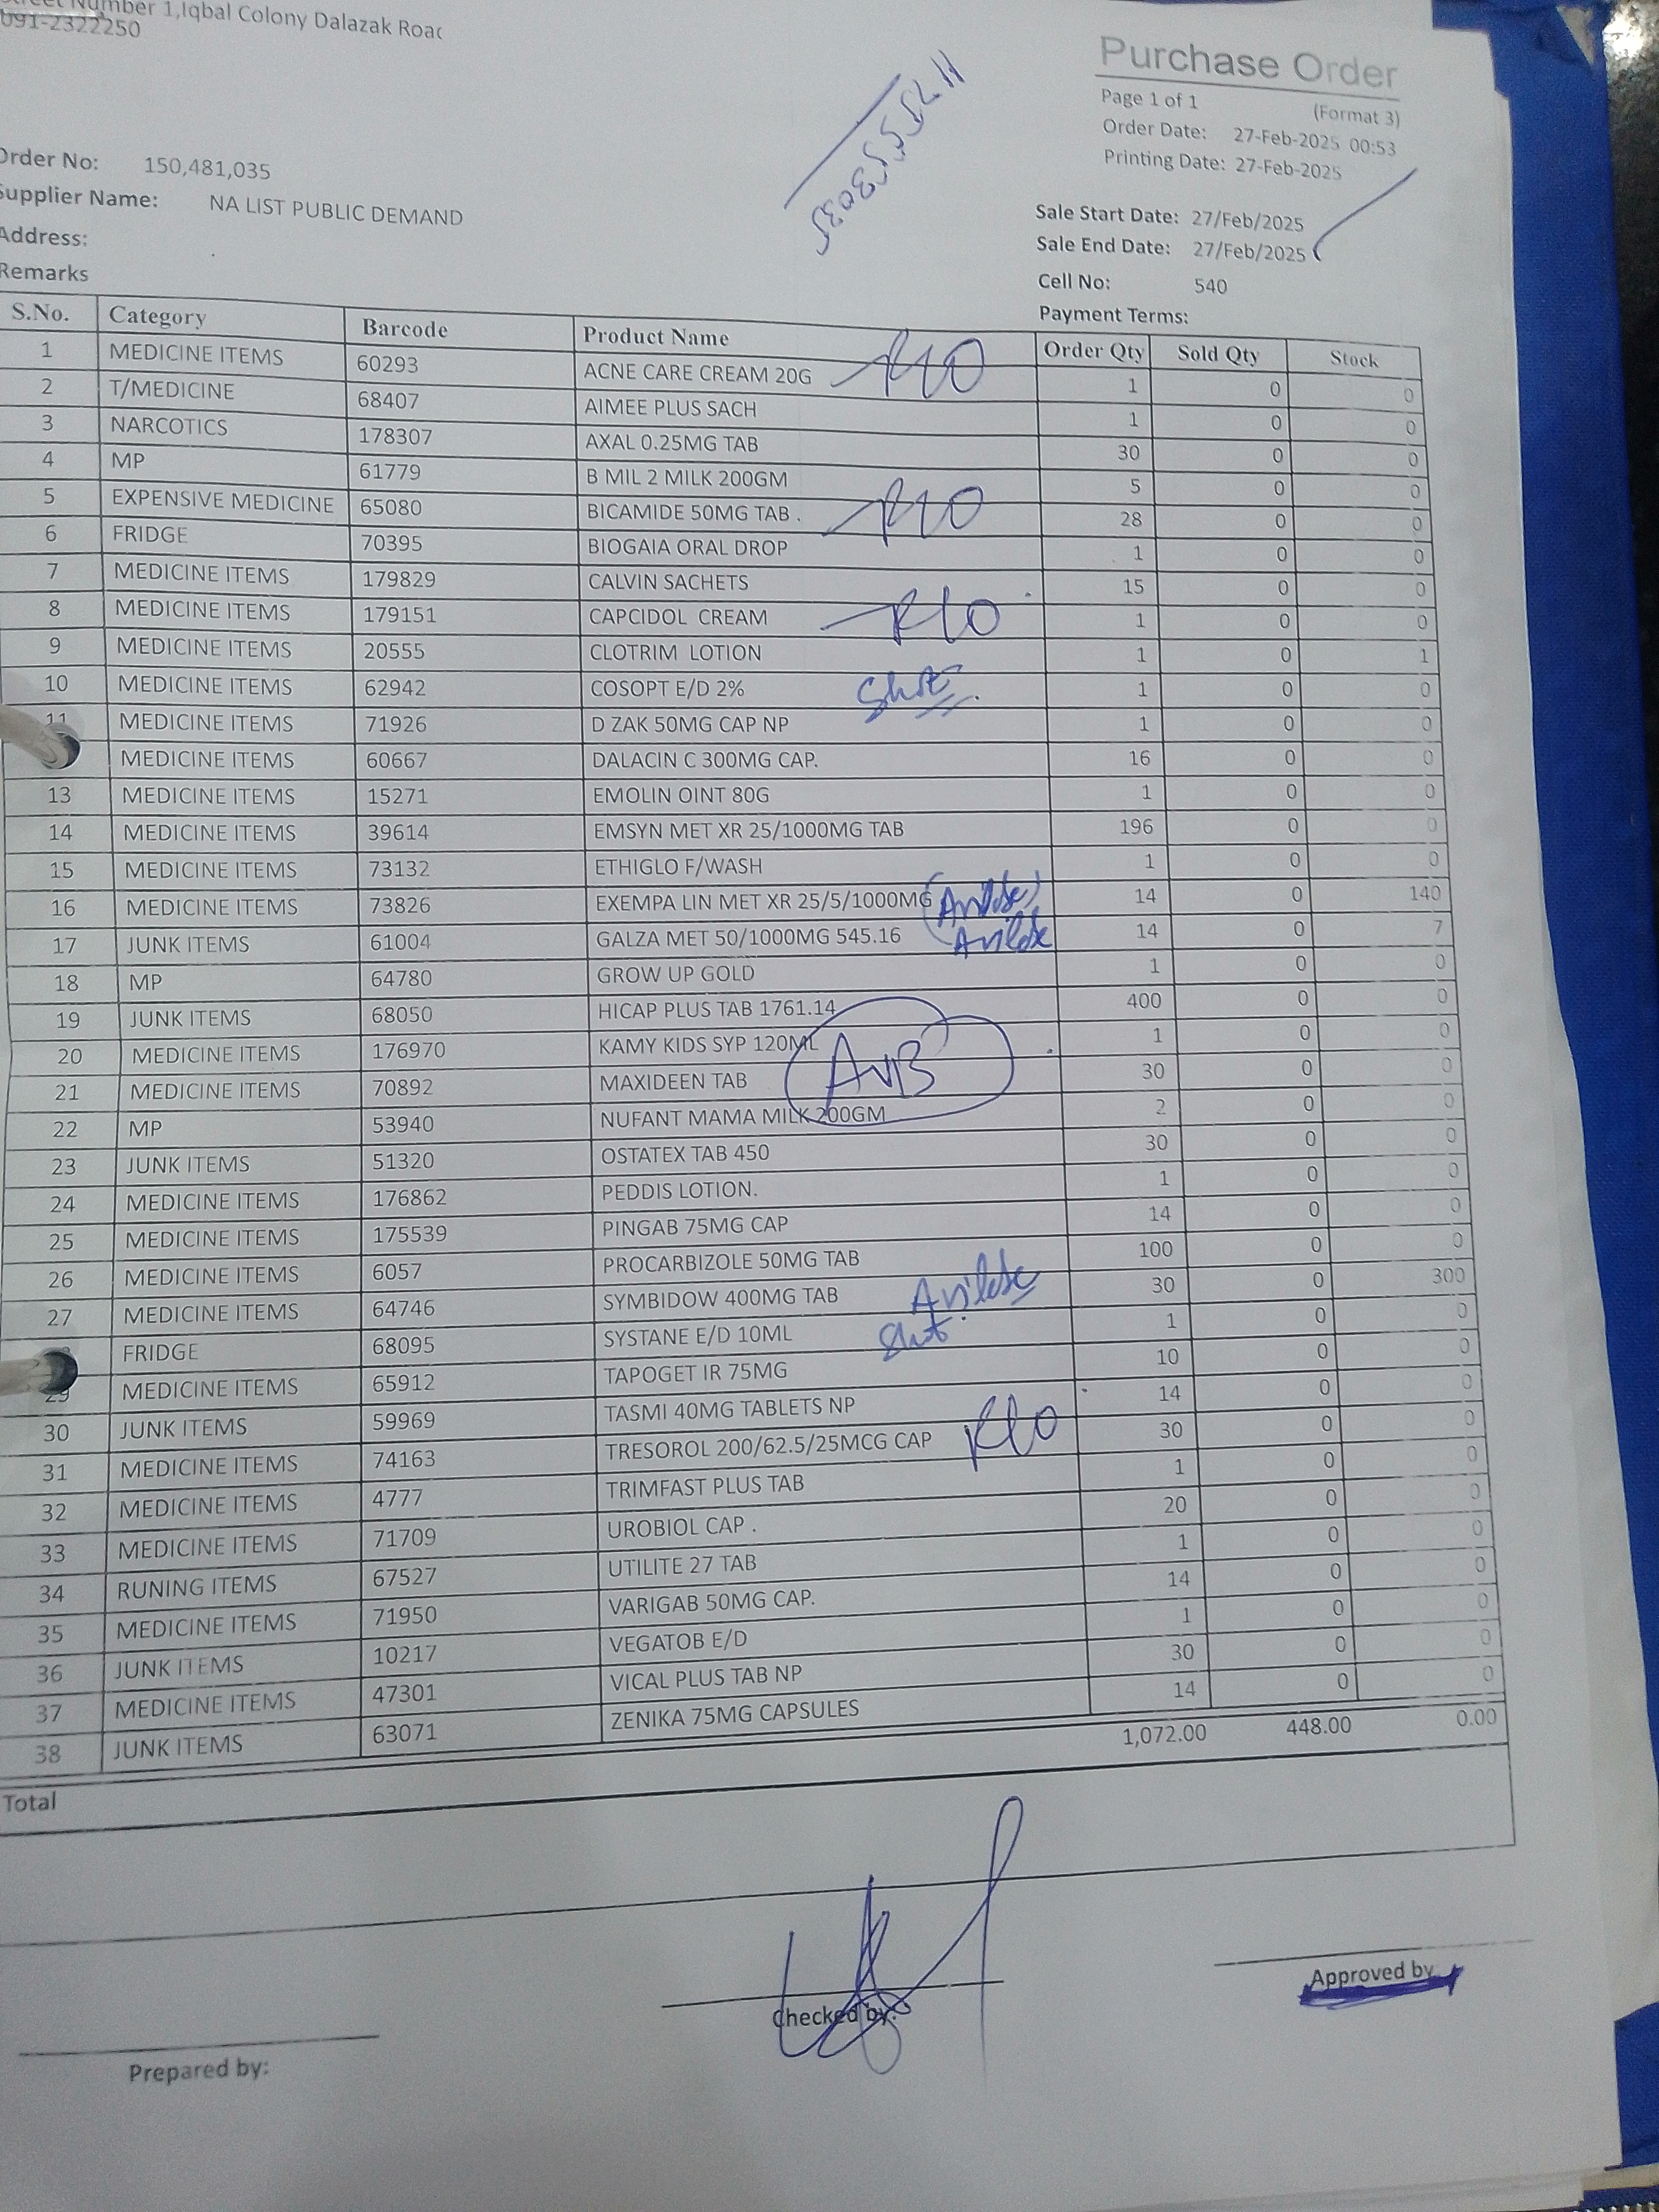 Number 1,Iqbal Colony Dalazak Road
091-2322250
Purchase Order
Page 1 of 1 (Format 3)
Order Date: 27-Feb-2025 00:53
Printing Date: 27-Feb-2025
Order No: 150,481,035
Supplier Name: NA LIST PUBLIC DEMAND
Address:
Remarks
Sale Start Date: 27/Feb/2025
Sale End Date: 27/Feb/2025
Cell No: 540
Payment Terms:
S.No. Category Barcode Product Name Order Qty Sold Qty Stock
1 MEDICINE ITEMS 60293 ACNE CARE CREAM 20G 1 0 0
2 T/MEDICINE 68407 AIMEE PLUS SACH 1 0 0
3 NARCOTICS 178307 AXAL 0.25MG TAB 30 0 0
4 MP 61779 B MIL 2 MILK 200GM 5 0 0
5 EXPENSIVE MEDICINE 65080 BICAMIDE 50MG TAB . 28 0 0
6 FRIDGE 70395 BIOGAIA ORAL DROP 1 0 0
7 MEDICINE ITEMS 179829 CALVIN SACHETS 15 0 0
8 MEDICINE ITEMS 179151 CAPCIDOL CREAM 1 0 0
9 MEDICINE ITEMS 20555 CLOTRIM LOTION 1 0 1
10 MEDICINE ITEMS 62942 COSOPT E/D 2% Shot 1 0 0
11 MEDICINE ITEMS 71926 D ZAK 50MG CAP NP 1 0 0
MEDICINE ITEMS 60667 DALACIN C 300MG CAP. 16 0 0
13 MEDICINE ITEMS 15271 EMOLIN OINT 80G 1 0 0
14 MEDICINE ITEMS 39614 EMSYN MET XR 25/1000MG TAB 196 0 0
15 MEDICINE ITEMS 73132 ETHIGLO F/WASH 1 0 0
16 MEDICINE ITEMS 73826 EXEMPA LIN MET XR 25/5/1000MG 14 0 140
17 JUNK ITEMS 61004 GALZA MET 50/1000MG 545.16 14 0 7
18 MP 64780 GROW UP GOLD 1 0 0
19 JUNK ITEMS 68050 HICAP PLUS TAB 1761.14 400 0 0
20 MEDICINE ITEMS 176970 KAMY KIDS SYP 120ML 1 0 0
21 MEDICINE ITEMS 70892 MAXIDEEN TAB 30 0 0
22 MP 53940 NUFANT MAMA MILK 200GM 2 0 0
23 JUNK ITEMS 51320 OSTATEX TAB 450 30 0 0
24 MEDICINE ITEMS 176862 PEDDIS LOTION. 1 0 0
25 MEDICINE ITEMS 175539 PINGAB 75MG CAP 14 0 0
26 MEDICINE ITEMS 6057 PROCARBIZOLE 50MG TAB 100 0 0
27 MEDICINE ITEMS 64746 SYMBIDOW 400MG TAB 30 0 300
FRIDGE 68095 SYSTANE E/D 10ML Shot 1 0 0
29 MEDICINE ITEMS 65912 TAPOGET IR 75MG 10 0 0
30 JUNK ITEMS 59969 TASMI 40MG TABLETS NP 14 0 0
31 MEDICINE ITEMS 74163 TRESOROL 200/62.5/25MCG CAP 30 0 0
32 MEDICINE ITEMS 4777 TRIMFAST PLUS TAB 1 0 0
33 MEDICINE ITEMS 71709 UROBIOL CAP . 20 0 0
34 RUNING ITEMS 67527 UTILITE 27 TAB 1 0 0
35 MEDICINE ITEMS 71950 VARIGAB 50MG CAP. 14 0 0
36 JUNK ITEMS 10217 VEGATOB E/D 1 0 0
37 MEDICINE ITEMS 47301 VICAL PLUS TAB NP 30 0 0
38 JUNK ITEMS 63071 ZENIKA 75MG CAPSULES 14 0 0
Total 1,072.00 448.00 0.00
Prepared by:
Checked by:
Approved by